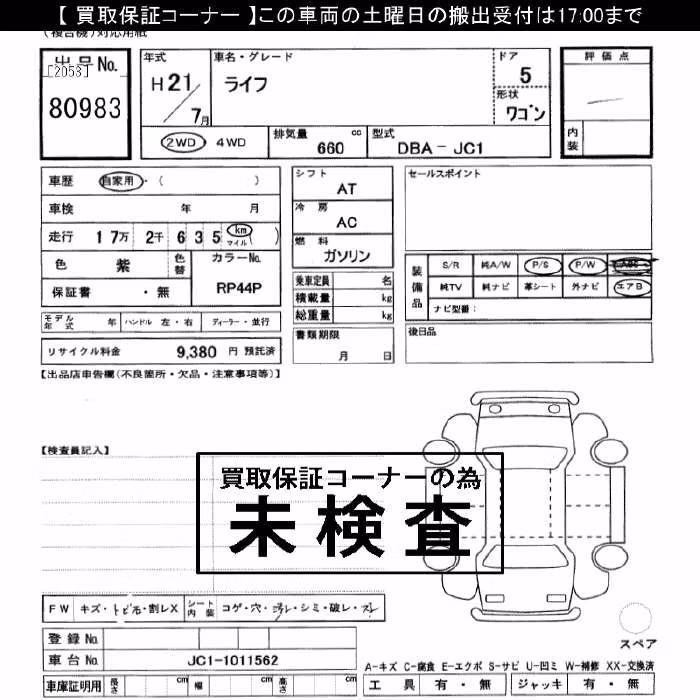 【 買取保証コーナー 】この車両の土曜日の搬出受付は17:00まで
(複合機)対応用紙
出品No.
[2053]
80983
年式
H21/7月
車名・グレード
ライフ
ドア
5
形状
ワゴン
評価点
内装
2WD・4WD
排気量 660 cc
型式 DBA－JC1
車歴 自家用・( )
車検 年 月
走行 17万 2千 635 km マイル ( )
色 紫 色替
カラーNo. RP44P
保証書 ・ 無
モデル年式 年 ハンドル 左・右 ディーラー・並行
リサイクル料金 9,380 円 預託済
シフト
AT
冷房
AC
燃料
ガソリン
乗車定員 名
積載量 kg
総重量 kg
書類期限
月 日
セールスポイント
装備品
S/R 純A/W P/S P/W ABS
純TV 純ナビ 革シート 外ナビ エアB
ナビ型番：
後日品
【出品店申告欄(不良箇所・欠品・注意事項等)】
【検査員記入】
買取保証コーナーの為
未検査
FW キズ・トビ石・割レX シート内装 コゲ・穴・汚レ・シミ・破レ・スレ
登録No.
車台No. JC1-1011562
車庫証明用 長さ cm 幅 cm 高さ cm
スペア
A-キズ C-腐食 E-エクボ S-サビ U-凹ミ W-補修 XX-交換済
工具 有・無 ジャッキ 有・無